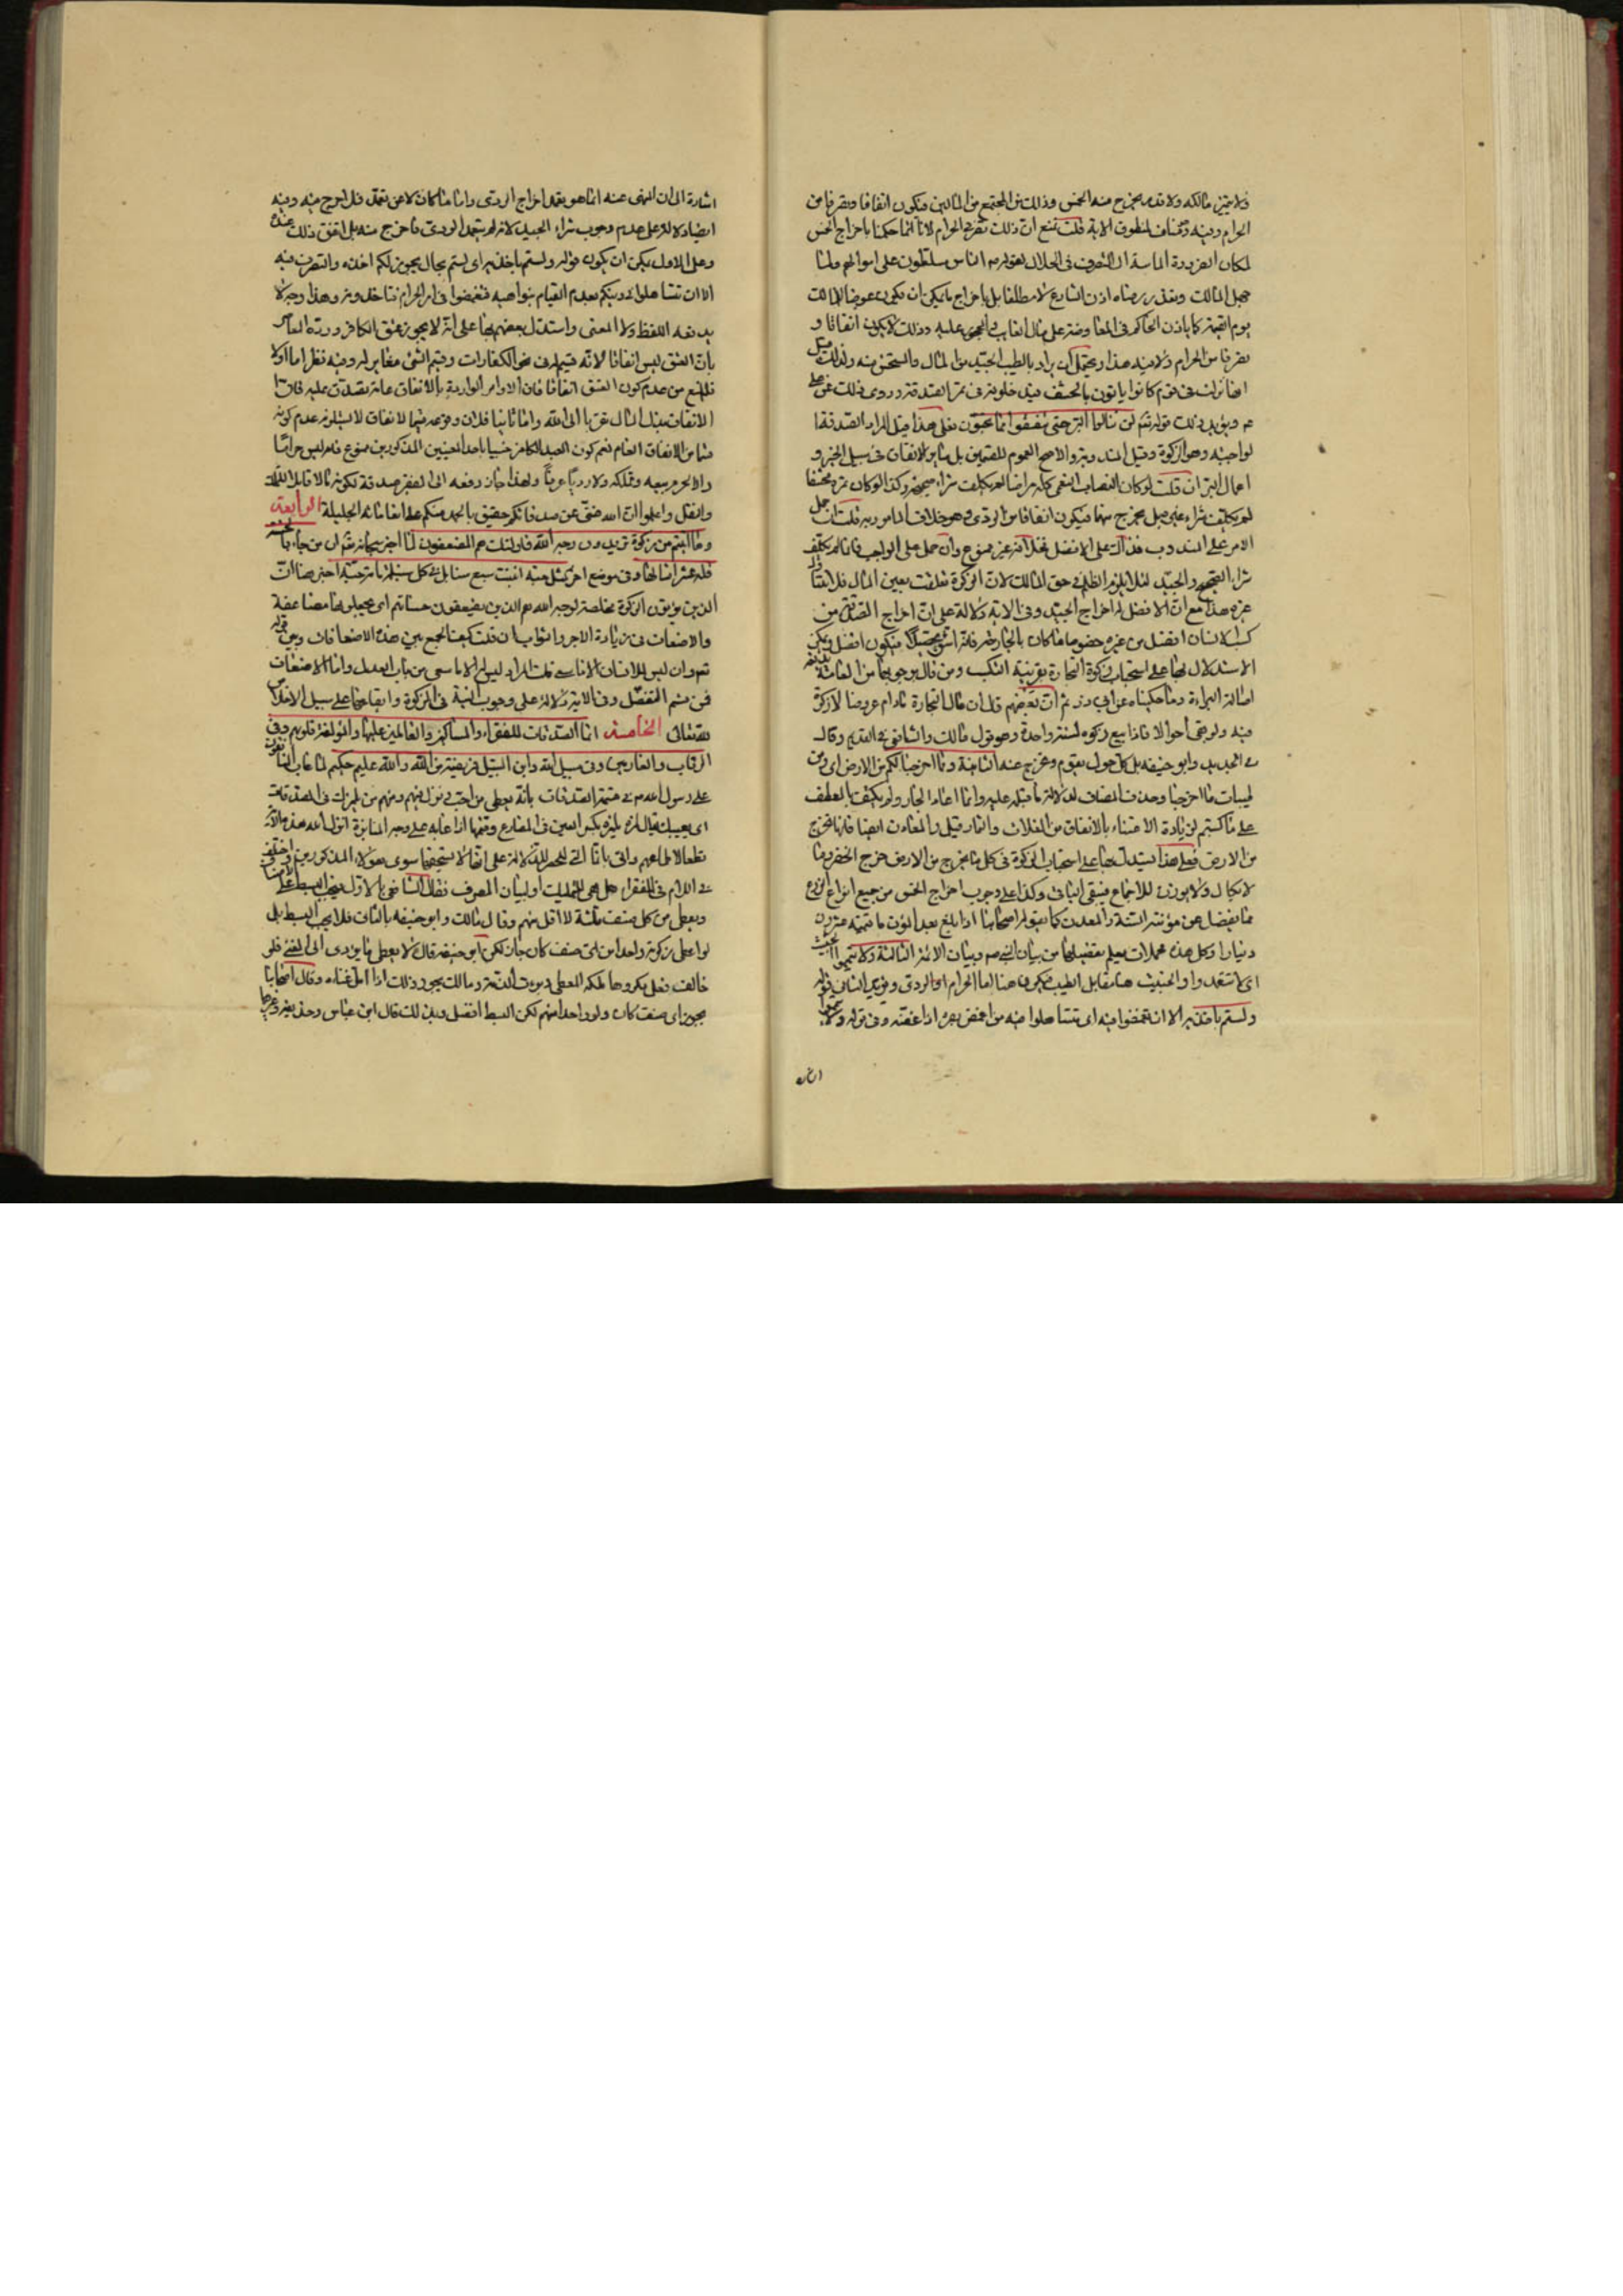 ولا يتميز مالكه ولا قدره يخرج منه الخمس وذلك من المجتمع من المالين فيكون انفاقا وتصرفا من
الحرام وفيه مخالف لمنطوق الاية قلت نمنع ان ذلك تصرف الحرام لانا انما حكمنا باخراج الخمس
لمكان الضرورة الماسة الى التصرف في الحلال لقوله الناس مسلطون على اموالهم ولما
جهل المالك وتعذر رضاه اذن الشارع لا مطلقا بل باخراج ما يمكن ان يكون عوضا للمالك
يوم القيمة كما ياذن الحاكم في المعاوضة على مال الغايب وذلك لا يكون انفاقا و
تصرفا من الحرام ولا فيه هذا ويحتمل ان يراد بالطيب الجيد من المال والمستحسن منه ولذلك قيل
انها نزلت في قوم كانوا ياتون بالحشف فيدخلونه في تمر الصدقة وروى ذلك عن علي
م ويؤيد ذلك قوله تم لن تنالوا البر حتى تنفقوا مما تحبون فعلى هذا قيل المراد الصدقة
الواجبة وهو الزكوة وقيل المندوبة والاصح العموم للقسمين بل سائر الانفاق في سبيل الخير و
اعمال البر ان قلت لو كان النصاب النعمي كله مراضا لم يكلف شراء صحيحة وكذا لو كان تمره حشفا
لم يكلف شراء غيره بل يخرج منها فيكون انفاقا من الردي وهو خلاف المامور به قلت ان حمل
الامر على المندوب فذاك على الافضل فلا انه غير ممنوع وان حمل على الواجب فانما لم يكلف
شراء الصحيح والجيد لئلا يلزم الظلم في حق المالك لان الزكوة تعلقت بعين المال فلا
غيره هذا مع ان الافضل له اخراج الجيد وفي الاية دلالة على ان اخراج الصدقة من
كسب الانسان افضل من غيره خصوصا ما كان بالتجارة فيكون افضل ويمكن
الاستدلال بها على استحباب زكوة التجارة بقرينة الكسب ومن قال بوجوبها من العامة
اصالة البراءة وما حكيناه عن ابي ذر ثم ان بعضهم قال ان مال التجارة ما دام عروضا لا زكوة
فيه ولو بقي احوالا فاذا بيع زكوه لسنة واحدة وهو قول مالك والشافعي في القديم وقال
في الجديد وابو حنيفه بل كل حول يقوم ويخرج عنه الثانية ومما اخرجنا لكم من الارض اى ومن
طيبات ما اخرجنا وحذف المضاف لدلالة ما قبله عليه وانما اعاد الجار ولم يكتف بالعطف
على ما كسبتم لزيادة الاعتناء بالانفاق من الغلات والثمار قيل والمعادن ايضا فانها تخرج
من الارض فعلى هذا يستدل بها على استحباب الزكوة في كل ما يخرج من الارض خرج الخضر وما
لا يكال ولا يوزن للاجماع فيبقى الباقي وكذا على وجوب اخراج الخمس من جميع انواع الزرع
مما يفضل عن مؤنة السنة والمعدن كما يقوله اصحابنا اذا بلغ بعد المؤن ما قيمته عشرون
دينارا وكل هذه مجملات يعلم تفصيلها من بيان النبي ص وبيان الائمة الثالثة ولا تيمموا الخبيث
اى لا تتعمدوا والخبيث هنا مقابل الطيب فيكون هنا اما الحرام او الردى ويؤيد الثاني قوله
ولستم باخذيه الا ان تغمضوا فيه اى تتساهلوا فيه من اغمض بصره اذا غضه وفى قوله ولا تيمموا
اشارة الى ان النهى عنه انما هو تعمد اخراج الردى واما ما كان لا عن تعمد فلا حرج فيه وفيه
ايضا دلالة على عدم وجوب شراء الجيد لانه لم يتعمد الردى فاخرج منه بل اتفق ذلك عنده
وعلى الاول يمكن ان يكون قوله ولستم باخذيه اى لستم بحال يجوز لكم اخذه والتصرف فيه
الا ان تتساهلوا في دينكم بعدم القيام بنواهيه فتغمضوا في امر الحرام فتاخذونه وهذا وجه لا
يدفعه اللفظ ولا المعنى واستدل بعضهم بها على انه لا يجوز عتق الكافر ورده المعاصر
بان العتق ليس انفاقا لانه قسيم له في نحو الكفارات وقسيم الشئ مغاير له وفيه نظر اما اولا
فللمنع من عدم كون العتق انفاقا فان الاوامر الواردة بالانفاق عامة تصدق عليه فان
الانفاق بذل المال تقربا الى الله واما ثانيا فلان وقوعه قسيما للانفاق لا يستلزم عدم كونه
قسما من الانفاق العام نعم كون العبد الكافر خبيثا باحد المعنيين المذكورين ممنوع فانه ليس حراما
والا لحرم بيعه وتملكه ولا رديا عرفا ولهذا جاز دفعه الى الفقير صدقة لكونه مالا قابلا للتملك
والنقل واعلموا ان الله غني عن صدقاتكم حقيق بالحمد منكم على انعاماته الجليلة الرابعة
وما اتيتم من زكوة تريدون وجه الله فاولئك هم المضعفون لما اخبر سبحانه تم ان من جاء بالحسنة
فله عشر امثالها وفي موضع اخر كمثل حبة انبتت سبع سنابل في كل سنبلة مائة حبة اخبر هنا ان
الذين يؤتون الزكوة مخلصة لوجه الله هم الذين يضعفون حسناتهم اى يجعلونها مضاعفة
والاضعاف في زيادة الاجر والثواب ان قلت كيف الجمع بين هذه الاضعافات وبين قوله
تم وان ليس للانسان الا ما سعى قلت المراد ليس له الا ما سعى من باب العدل واما الاضعاف
فمن قسم التفضل وفى الاية دلالة على وجوب النية في الزكوة وايقاعها على سبيل الاخلاص
لله تعالى الخامسة انما الصدقات للفقراء والمساكين والعاملين عليها والمؤلفة قلوبهم وفى
الرقاب والغارمين وفى سبيل الله وابن السبيل فريضة من الله والله عليم حكيم لما عاب المنافقون
على رسول الله ص في قسمة الصدقات بانه يعطى من احب نزل فيهم ومنهم من يلمزك في الصدقات
اى يعيبك يقال لمزه يلمزه بكسر العين في المضارع وضمها اذا عابه على وجه المنابزة انزل الله هذه الاية
قطعا لاطماعهم واتى بانما التي للحصر للدلالة على انها لا يستحقها سوى هؤلاء المذكورين واختلف
في اللام في للفقراء هل هي للتمليك او لبيان المصرف فقال الشافعي بالاول فيجب البسط على الاصناف
ويعطى من كل صنف ثلثة لا اقل منهم وقال مالك وابو حنيفه بالثاني فلا يجب البسط بل
لو اعطى زكوته واحدا من اى صنف كان جاز لكن ابو حنيفة قال لا يعطى ما يؤدى الى الغنى فلو
خالف فعل مكروها لملكه المعطى وبرءت الذمة ومالك يجوز ذلك اذا امل غناءه وقال اصحابنا
يجوز اى صنف كان ولو واحدا منهم لكن البسط افضل وبذلك قال ابن عباس وحذيفة وغيرهما